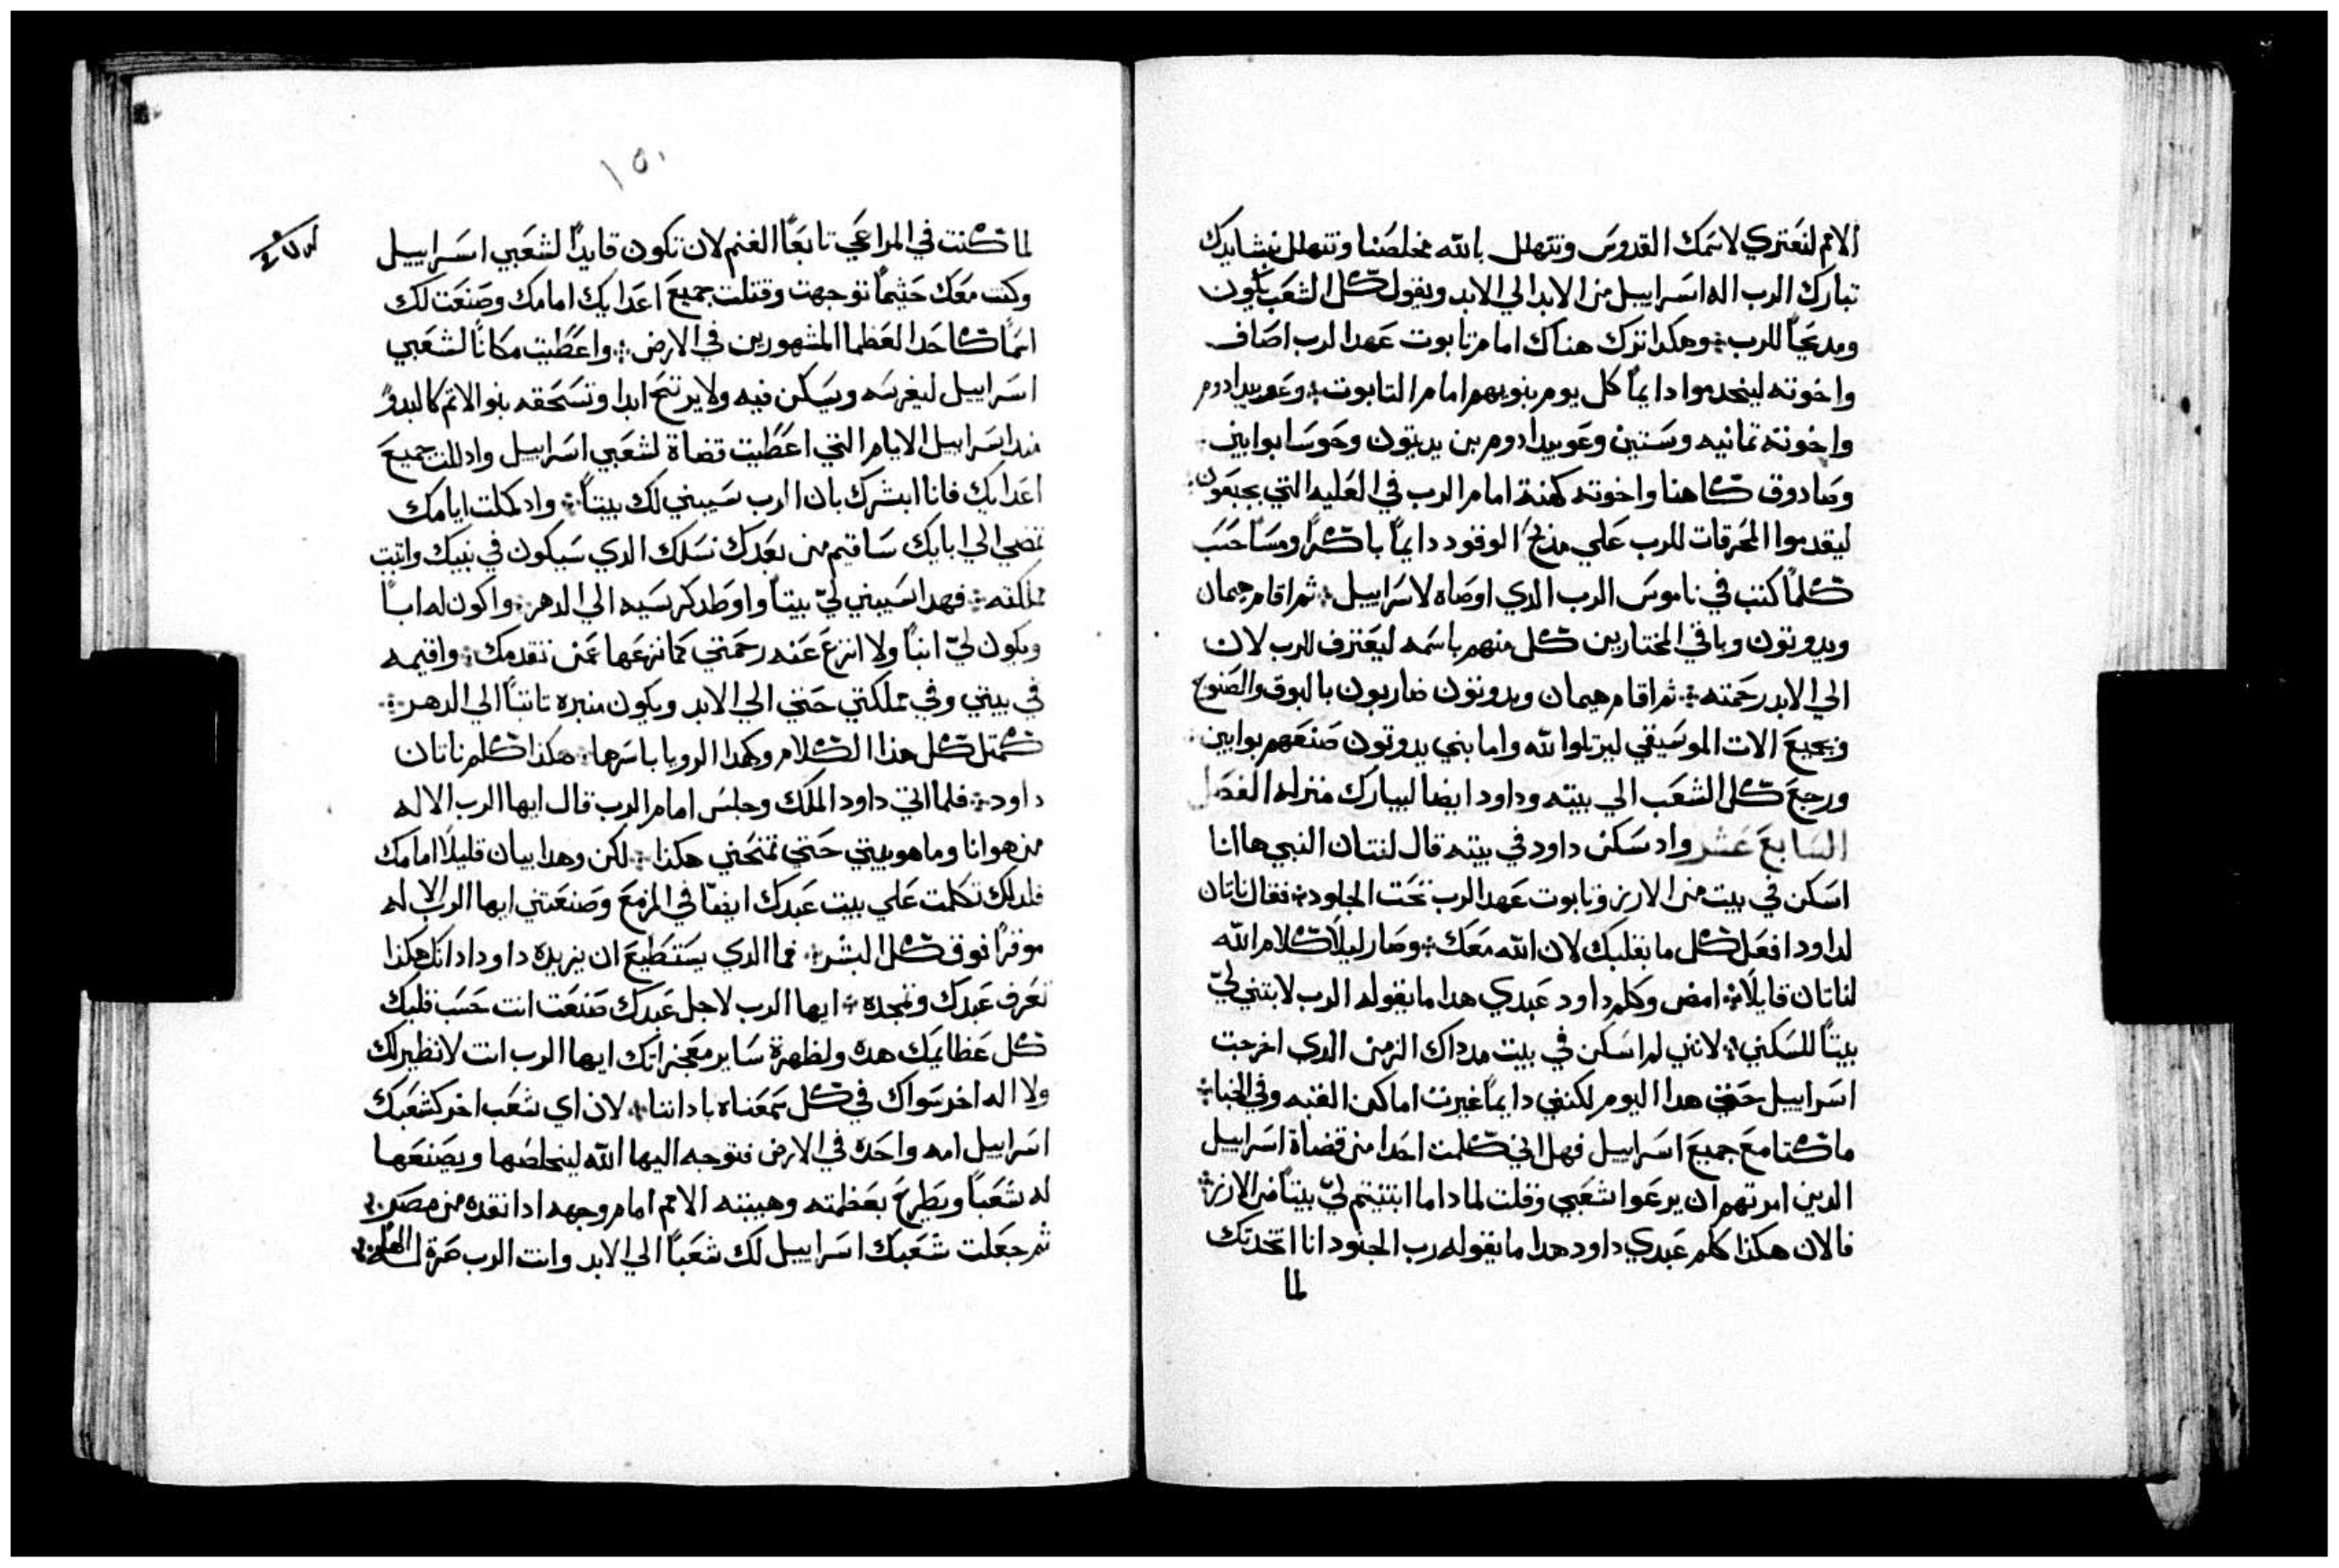 الامم لنعتري لاسمك القدوس ونتهلل بالله مخلصنا ونتهلل بنشايدك
تبارك الرب اله اسراييل من الابد الي الابد ويقول كل الشعب يكون
ومديحًا للرب وهكدا ترك هناك امام تابوت عهد الرب اصاف
واخوته ليخدموا دايمًا كل يوم بنوبهم امام التابوت وعوبيد ادوم
واخوته تمانيه وستين وعوبيد ادوم بن يديتون وحوسا بوابين
وصادوق كاهنا واخوته كهنة امام الرب في العليه التي بجبعون
ليقدموا المحرقات للرب علي مذبح الوقود دايمًا باكرًا ومسًا حسب
كلما كتب في ناموس الرب الدي اوصاه لاسراييل ثم اقام هيمان
ويدوتون وباقي المختارين كل منهم باسمه ليعترف للرب لان
الي الابد رحمته ثم اقام هيمان ويدوتون ضاربون بالبوق والصنوج
وبجميع الات الموسيقي ليرتلوا لله واما بني يدوتون صنعهم بوابين
ورجع كل الشعب الي بيته وداود ايضا ليبارك منزله الفصل
السابع عشر واد سكن داود في بيته قال لنتان النبي ها انا
اسكن في بيت من الارز وتابوت عهد الرب تحت الجلود فقال ناتان
لداود افعل كل ما بقلبك لان الله معك وصار ليلًا كلام الله
لناتان قايلًا امض وكلم داود عبدي هدا ما يقوله الرب لا بتني ليّ
بيتًا للسكني لانني لم اسكن في بيت مد داك الزمن الدي اخرجت
اسراييل حتي هدا اليوم لكنني دايمًا غيرت اماكن القبه وفي الخبا
ماكتا مع جميع اسراييل فهل اني كلمت احدا من قضاة اسراييل
الدين امرتهم ان يرعوا شعبي وقلت لمادا ما ابتنيتم ليّ بيتًا من الارز
فالان هكذا كلم عبدي داود هدا ما يقوله رب الجنود انا اتخدتك
لما
١٥٠
لما كنت في المراعي تابعًا الغنم لان تكون قايدًا لشعبي اسراييل
وكنت معك حثيما توجهت وقتلت جميع اعدايك امامك وصنعت لك
اسمًا كاحد العظما المشهورين في الارض واعطيت مكانًا لشعبي
اسراييل ليغرسه ويسكن فيه ولا يرتج ابدا وتسحقه بنو الاتم كالبدو
مند اسراييل الايام التي اعطيت قضاة لشعبي اسراييل وادللت جميع
اعدايك فانا ابشرك بان الرب سيبني لك بيتًا واد كملت ايامك
تمضي الي ابايك ساقيم من بعدك نسلك الدي سيكون في بنيك واتبت
مملكته فهدا سيبني ليّ بيتًا واوطد كرسيه الي الدهر واكون له ابًا
ويكون ليّ ابنًا ولا انزع عنه رحمتي كما نزعها عمن تقدمك واقيمه
في بيتي وفي مملكتي حتي الي الابد ويكون منبره تابتًا الي الدهر
كمتل كل هذا الكلام وكهدا الرويا باسرها هكذا كلم ناتان
داود فلما اتي داود الملك وجلس امام الرب قال ايها الرب الاله
من هو انا وما هو بيتي حتي تمنحني هكذا لكن وهدا بيان قليلًا امامك
فلدلك تكلمت علي بيت عبدك ايضًا في المزمع وصنعتني ايها الرب الاله
موقرًا فوق كل البشر فما الدي يستطيع ان يزيده داود اد انك هكذا
تعرف عبدك وتمجده ايها الرب لاجل عبدك صنعت انت حسب قلبك
كل عظايمك هده ولظهرة ساير معجزاتك ايها الرب انت لا نظير لك
ولا اله اخر سواك في كل سمعناه بادانتا لان اي شعب اخر كشعبك
اسراييل امه واحده في الارض فتوجه اليها الله ليخلصها ويصنعها
له شعبًا ويطرح بعظمته وهيبته الامم امام وجهه ادا نقده من مصر
ثم جعلت شعبك اسراييل لك شعبًا الي الابد وانت الرب صرة له الها